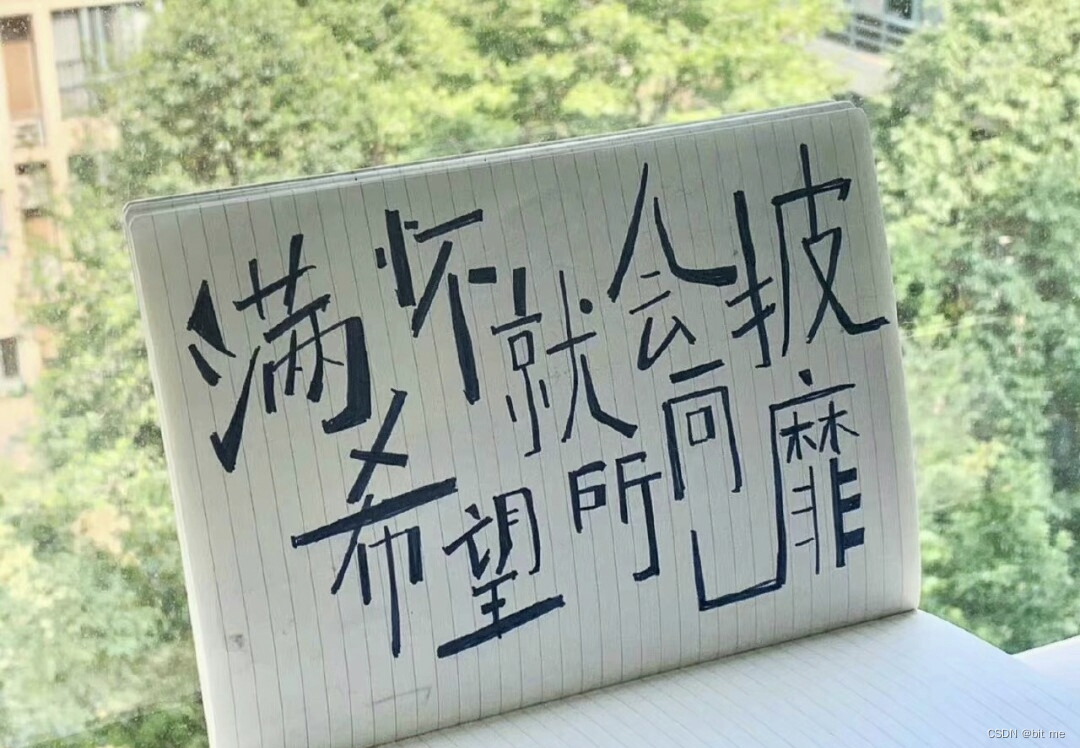 满怀就会披
希望所向靡
CSDN @bit me